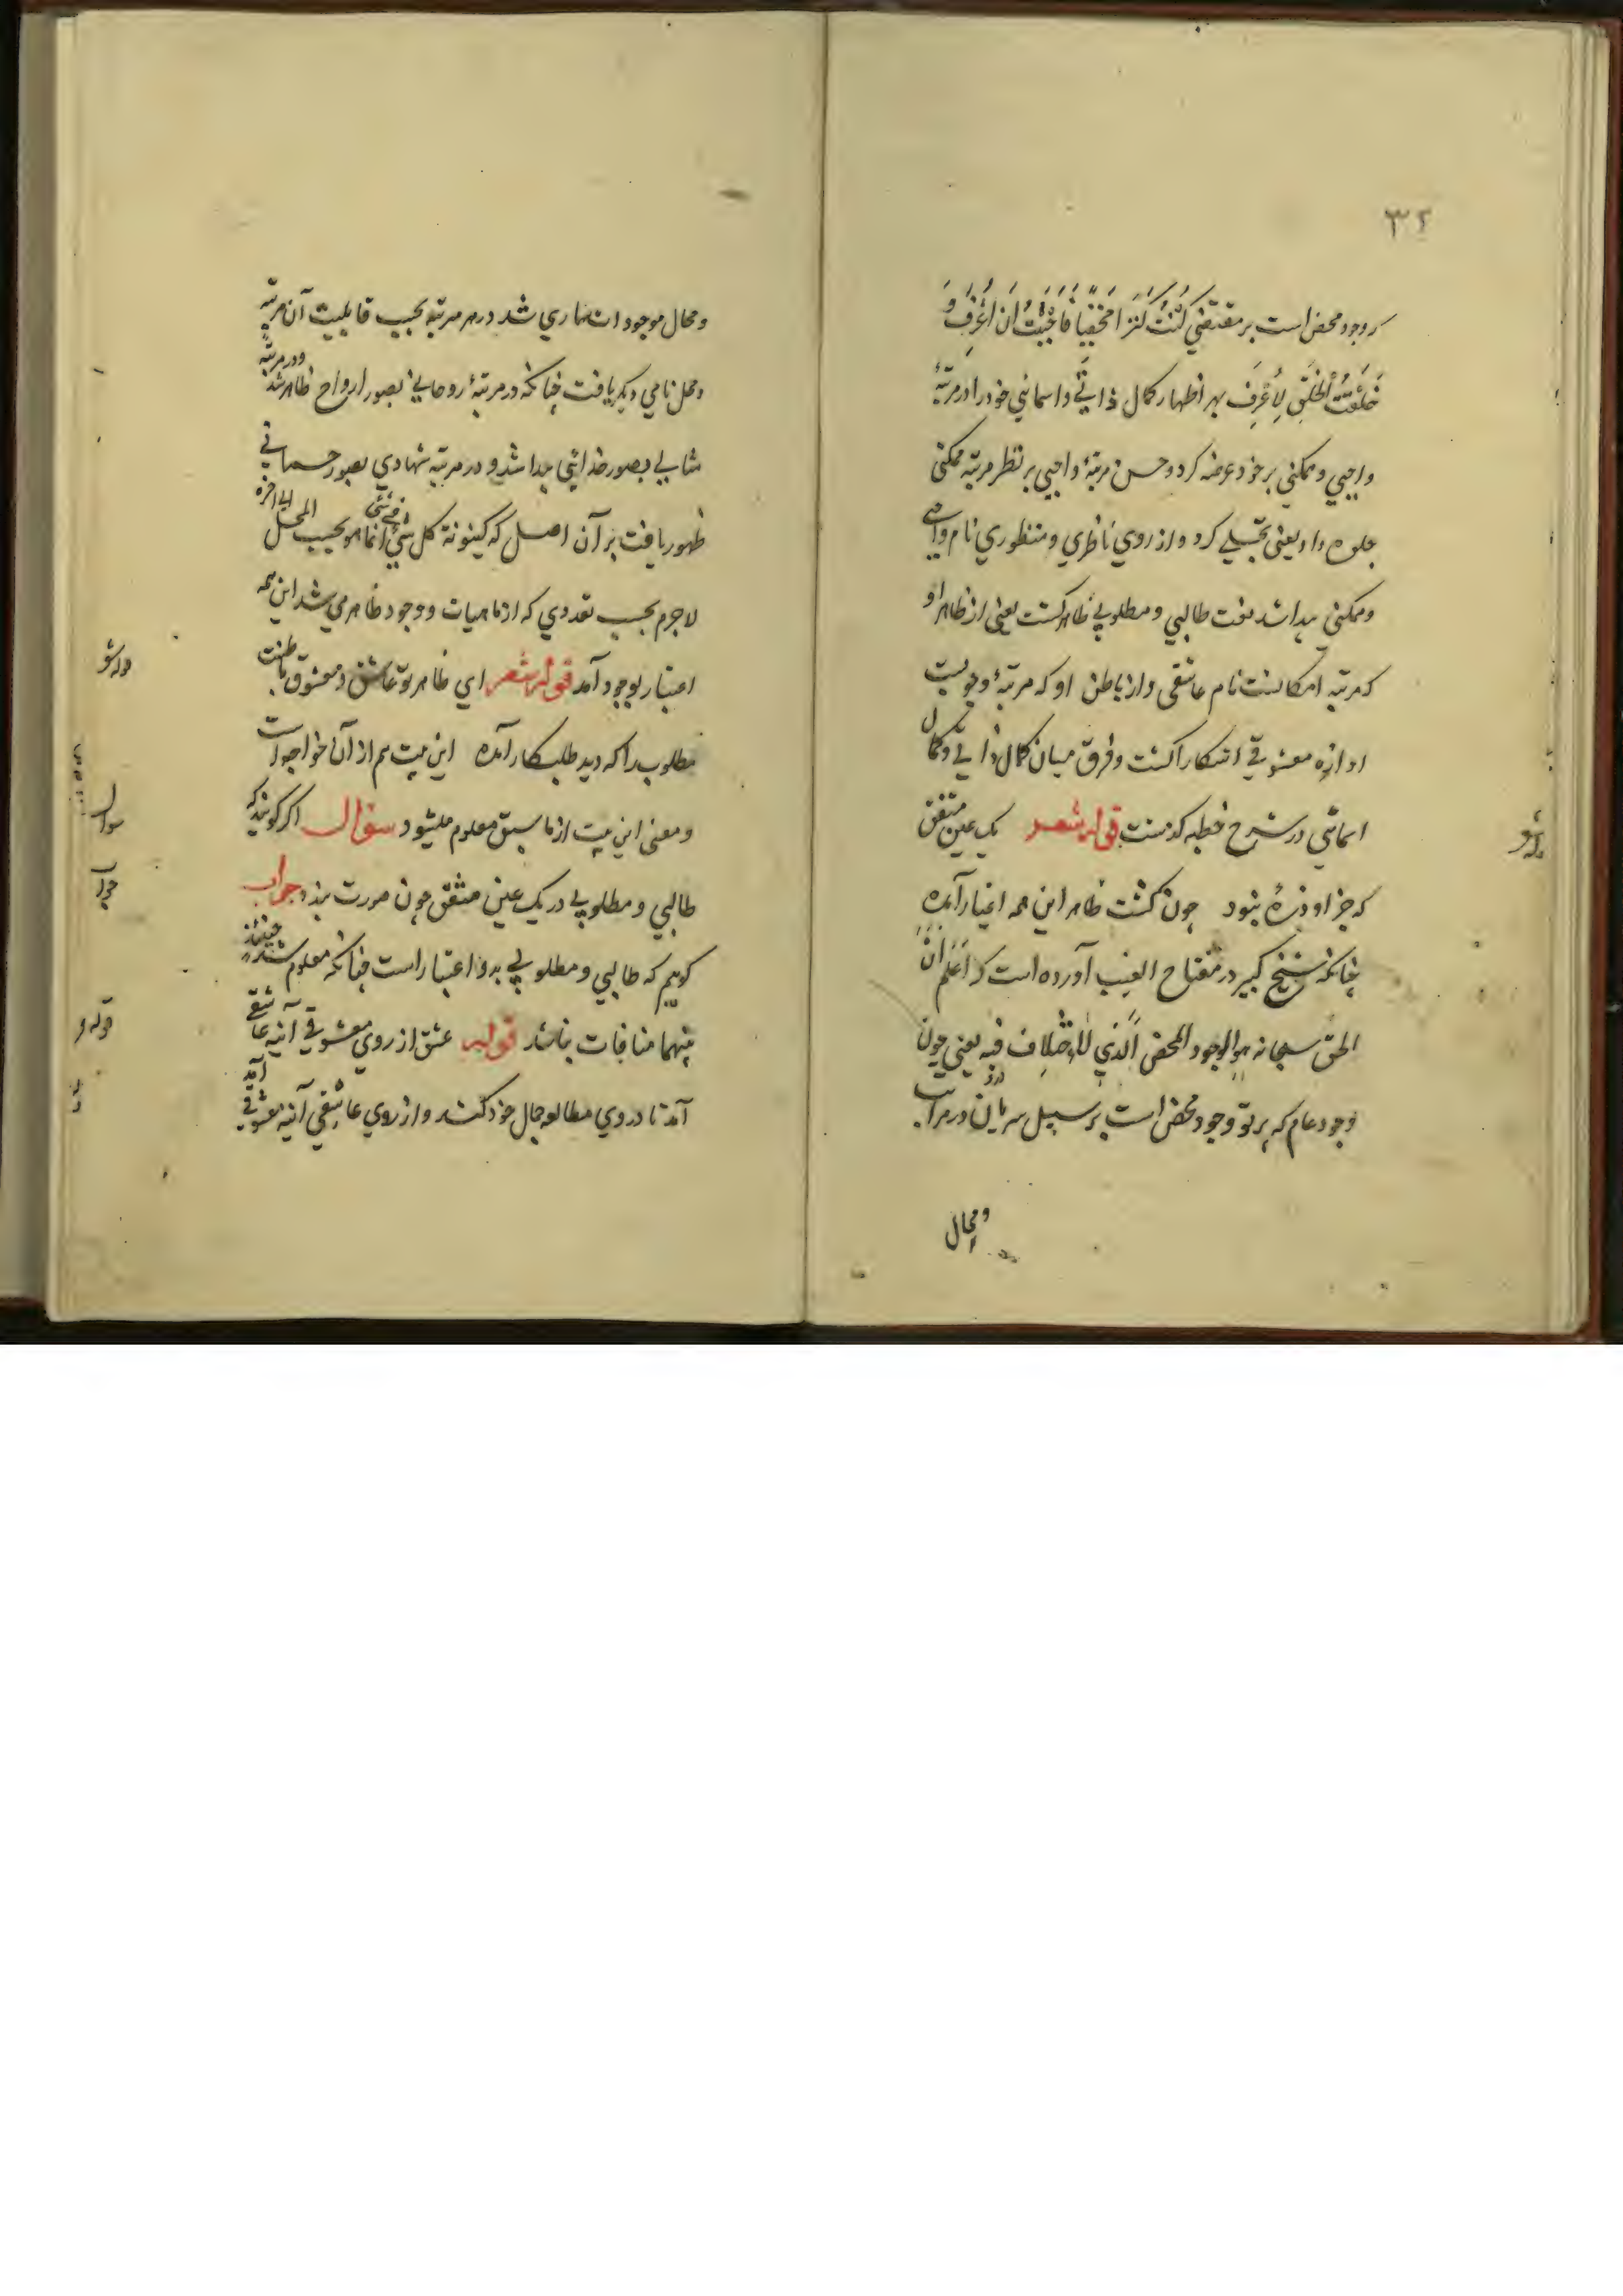 ۳۲
که وجود محض است بر مقتضی کُنْتُ کَنْزاً مَخْفِیّاً فَاَحْبَبْتُ اَنْ اُعْرَفَ وَ
خَلَقْتُ الْخَلْقَ لِاُعْرَفَ بهر اظهار کمال ذاتی و اسمائی خود را در مرتبهٔ
واجبی و ممکنی بر خود عرضه کرد و حسن مرتبهٔ واجبی بر نظر مرتبه ممکنی
جلوه داد یعنی تجلی کرد و از روی ناظری و منظوری نام واجبی
و ممکنی پیدا شد نعت طالبی و مطلوبی ظاهر کشت یعنی از ظاهر او
که مرتبه امکانست نام عاشقی و از باطن او که مرتبهٔ وجوبیست
اوازه معشوقی اشکارا کشت و فرق میان کمال ذاتی و کمال
اسمائی در شرح خطبه کذشت قوله شعر یک عین متفق
که جز او ذرهٔ نبود چون کشت ظاهر این همه اغیار آمده
چنانکه شیخ کبیر در مفتاح الغیب آورده است که اَعْلَم اَنَّ
الحق سبحانه هو الوجود المحض الّذی لا اختلاف فیه یعنی چون
وجود عام که پرتو وجود محض است بر سبیل سریان در مراتب
و محال
قوله شعر
و محال موجودات ساری شد در هر مرتبه بحسب قابلیت آن مرتبه
و محل نامی دیکر یافت چنانکه در مرتبهٔ روحانی بصور ارواح ظاهر شد و در مرتبه
مثالی بصور پیدا شد و در مرتبه شهادی بصور جسمانی
ظهور یافت بر آن اصل که کینونة کل شئ فی شئ انما هو بحسب المحل الی اخره
لاجرم بحسب تعددی که از ماهیات و وجود ظاهر می شد این همه
اعتبار بوجود آمد قوله شعر ای ظاهر تو عاشق و معشوق باطنت
مطلوب را که دید طلبکار آمده این بیت هم از آن خواجه است
و معنی این بیت از ما سبق معلوم میشود سؤال اکر کویند که
طالبی و مطلوبی در یک عین متفق چون صورت بندد جواب
کویم که طالبی و مطلوبی بدو اعتبار است چنانکه معلوم شد حینئذ
بینهما منافات نباشد قوله عشق از روی معشوقی آینه عاشقی آمد
آمد تا در وی مطالعه جمال خود کند و از روی عاشقی آینه معشوقی
قوله شعر
سوال
جواب
قوله و